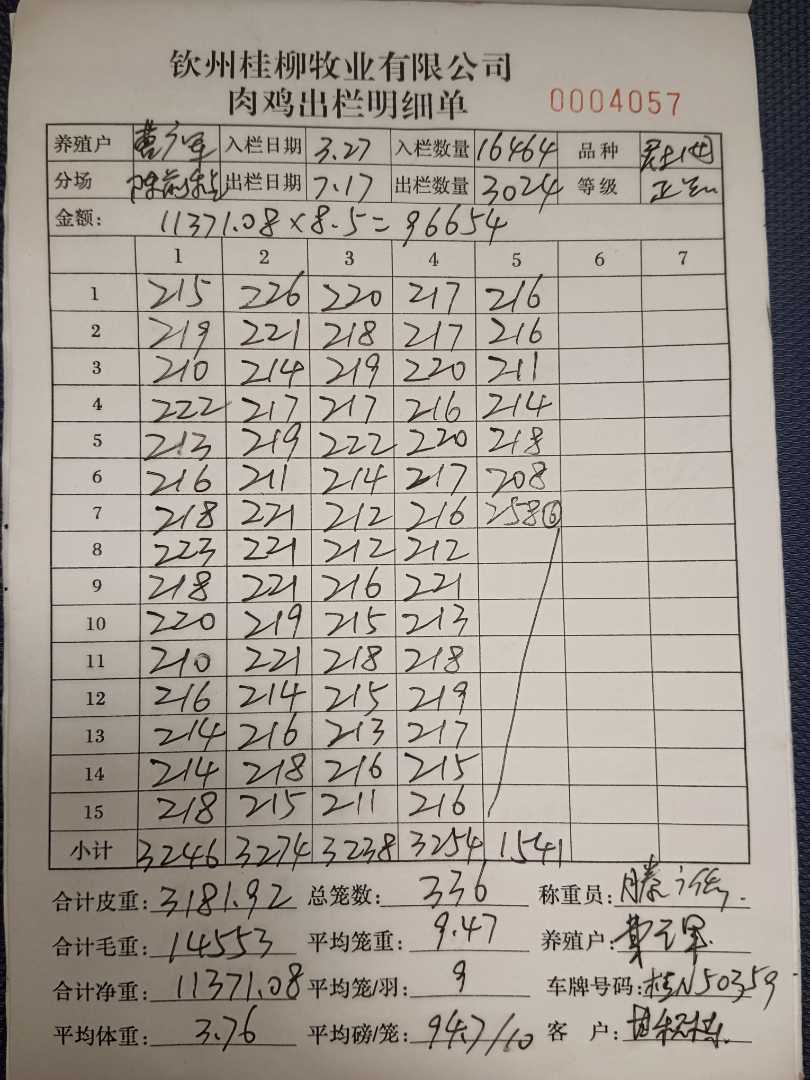 钦州桂柳牧业有限公司
肉鸡出栏明细单 0004057
养殖户 入栏日期 3.27 入栏数量 16464 品种
分场 出栏日期 7.17 出栏数量 3024 等级
金额: 11371.08×8.5=96654
1 2 3 4 5 6 7
1 215 226 220 217 216
2 219 221 218 217 216
3 210 214 219 220 211
4 222 217 217 216 214
5 213 219 222 220 218
6 216 211 214 217 208
7 218 221 212 216 258⑥
8 223 221 212 212
9 218 221 216 221
10 220 219 215 213
11 210 221 218 218
12 216 214 215 219
13 214 216 213 217
14 214 218 216 215
15 218 215 211 216
小计 3246 3274 3238 3254 1541
合计皮重: 3181.92 总笼数: 336 称重员: 滕
合计毛重: 14553 平均笼重: 9.47 养殖户:
合计净重: 11371.08 平均笼/羽: 9 车牌号码: 桂N50359
平均体重: 3.76 平均磅/笼: 94.7/10 客 户: